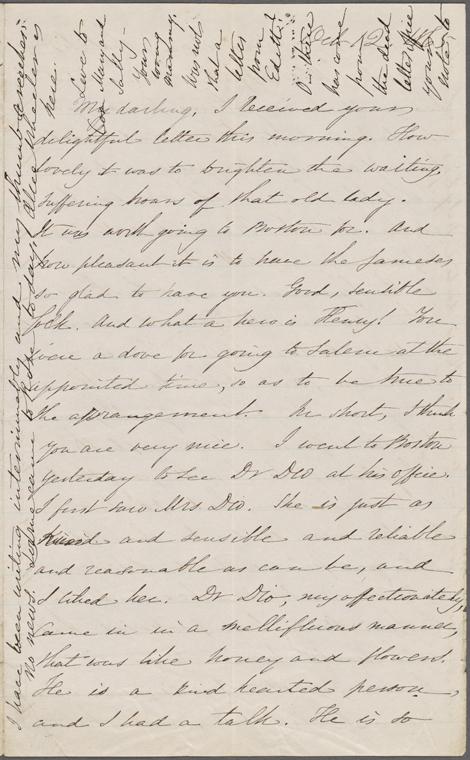 Oct 12
My darling, I received your
delightful letter this morning. How
lovely it was to brighten the waiting,
suffering hours of that old lady.
It was worth going to Boston for. And
how pleasant it is to have the Jameses
so glad to have you. Good, sensible
folk. And what a hero is Henry! You
were a dove for going to Salem at the
appointed time, so as to be true to
the arrangement. In short, I think
you are very nice. I went to Boston
yesterday to see Dr Dio at his office.
I first saw Mrs Dio. She is just as
kind and sensible and reliable
and reasonable as can be, and
I liked her. Dr Dio, my affectionately,
came in in a mellifluous manner,
that was like honey and flowers.
He is a kind hearted person,
and I had a talk. He is so
Love to
Mary and
Yours
morning.
Was not
that a
letter
from
Edith?
has come
from
the dead
letter office
your
note, to
I have been writing interminably and my thumb creeches.
No news. came to Rose to day. Wheeler is
here.